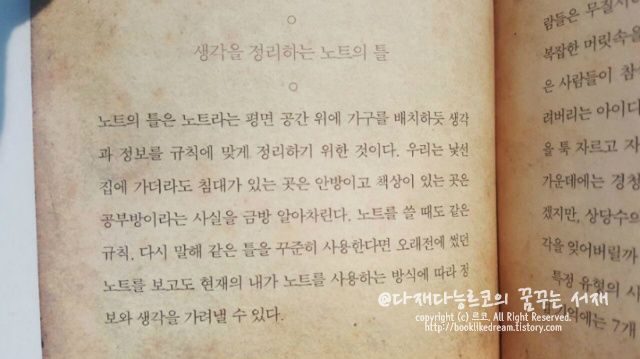 생각을 정리하는 노트의 틀
노트의 틀은 노트라는 평면 공간 위에 가구를 배치하듯 생각
과 정보를 규칙에 맞게 정리하기 위한 것이다. 우리는 낯선
집에 가더라도 침대가 있는 곳은 안방이고 책상이 있는 곳은
공부방이라는 사실을 금방 알아차린다. 노트를 쓸 때도 같은
규칙, 다시 말해 같은 틀을 꾸준히 사용한다면 오래전에 썼던
노트를 보고도 현재의 내가 노트를 사용하는 방식에 따라 정
보와 생각을 가려낼 수 있다.
람들은 무질서
복잡한 머릿속을
은 사람들이 참
려버리는 아이디
을 툭 자르고 자
가운데에는 경청
겠지만, 상당수의
각을 잊어버릴까
특정 유형의 시
기억에는 7개
@다재다능르코의 꿈꾸는 서재
copyright (c) 르코. All Right Reserved.
http://booklikedream.tistory.com